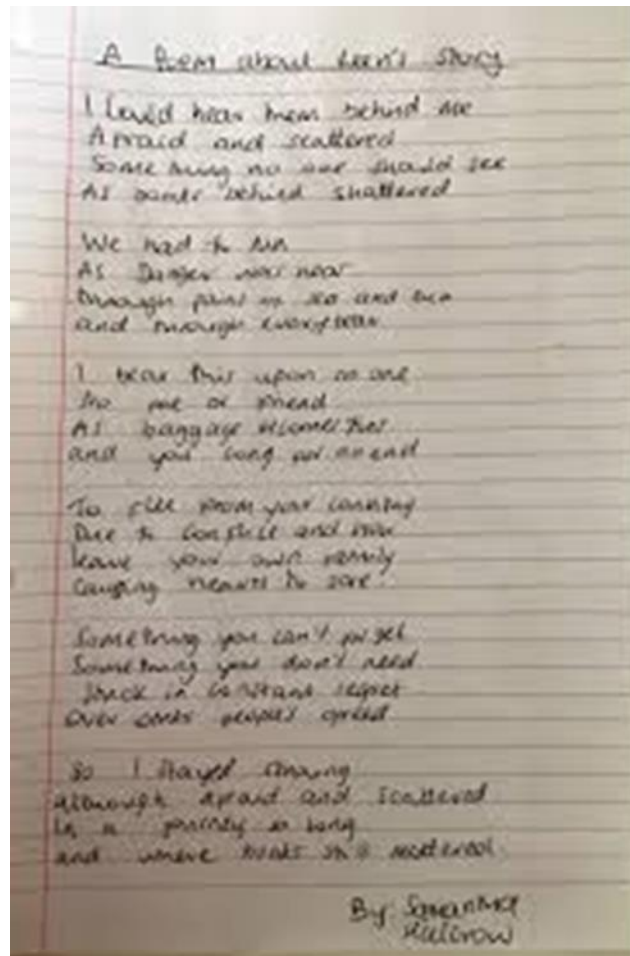 A Poem about 's story
I Could hear them behind me
Afraid and scattered
Something no one should see
As behind shattered
We had to run
As Danger was near
through pain and
and through every tear
I bear this upon no one
No or friend
As baggage becomes
and you long for an end
To flee from your country
Due to conflict and war
leave your own family
Causing hearts to sore
Something you can't forget
Something you don't need
stuck in constant regret
over people's greed
So I stayed strong
although afraid and scattered
in a journey so long
and where still mattered
By: Samantha